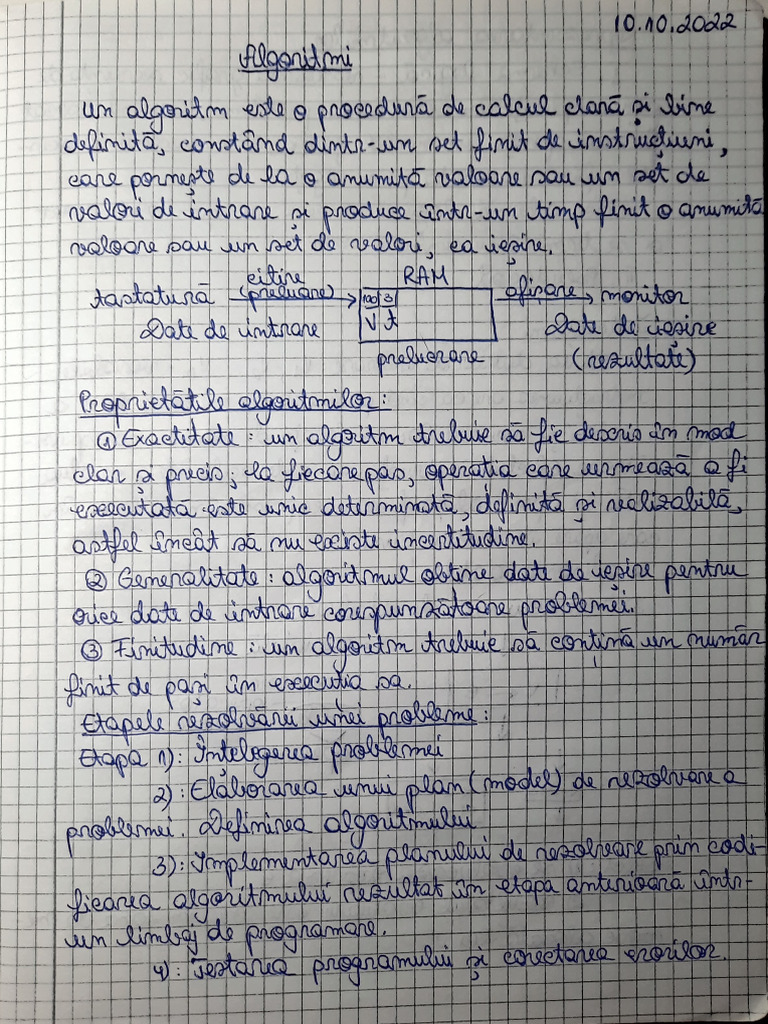 10.10.2022
Algoritmi
Un algoritm este o procedură de calcul clară și bine
definită, constând dintr-un set finit de instrucțiuni,
care pornește de la o anumită valoare sau un set de
valori de intrare și produce într-un timp finit o anumită
valoare sau un set de valori, ca ieșire.
citire RAM
tastatură (preluare) 100 3 afișare monitor
Date de intrare V t Date de ieșire
prelucrare (rezultate)
Proprietățile algoritmilor:
① Exactitate: un algoritm trebuie să fie descris în mod
clar și precis; la fiecare pas, operația care urmează a fi
executată este unic determinată, definită și realizabilă,
astfel încât să nu existe incertitudine.
② Generalitate: algoritmul obține date de ieșire pentru
orice date de intrare corespunzătoare problemei.
③ Finitudine: un algoritm trebuie să conțină un număr
finit de pași în execuția sa.
Etapele rezolvării unei probleme:
Etapa 1): Înțelegerea problemei
2): Elaborarea unui plan (model) de rezolvare a
problemei. Definirea algoritmului
3): Implementarea planului de rezolvare prin codi-
ficarea algoritmului rezultat în etapa anterioară într-
un limbaj de programare.
4): Testarea programului și corectarea erorilor.